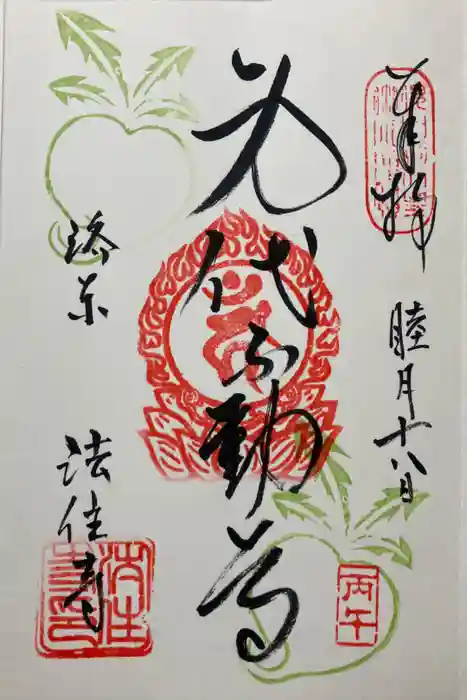 奉拝
睦月十八日
身代不動尊
丙午
洛東
法住寺